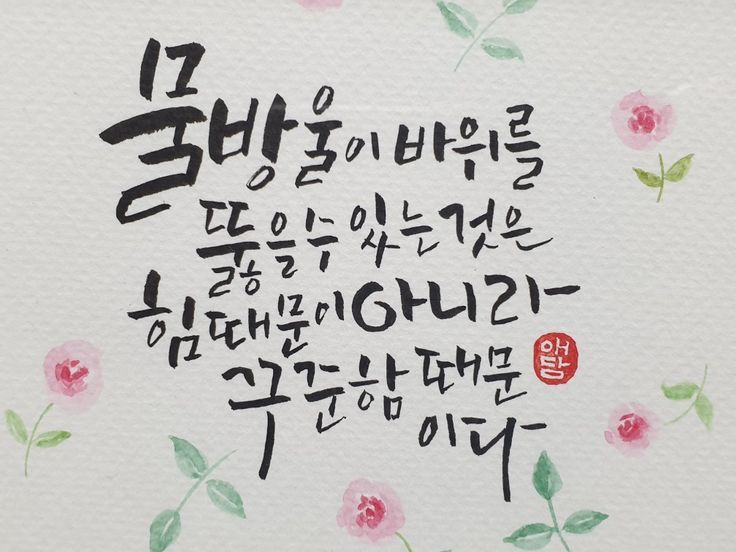 물방울이 바위를
뚫을 수 있는 것은
힘 때문이 아니라
꾸준함 때문
이다
애담